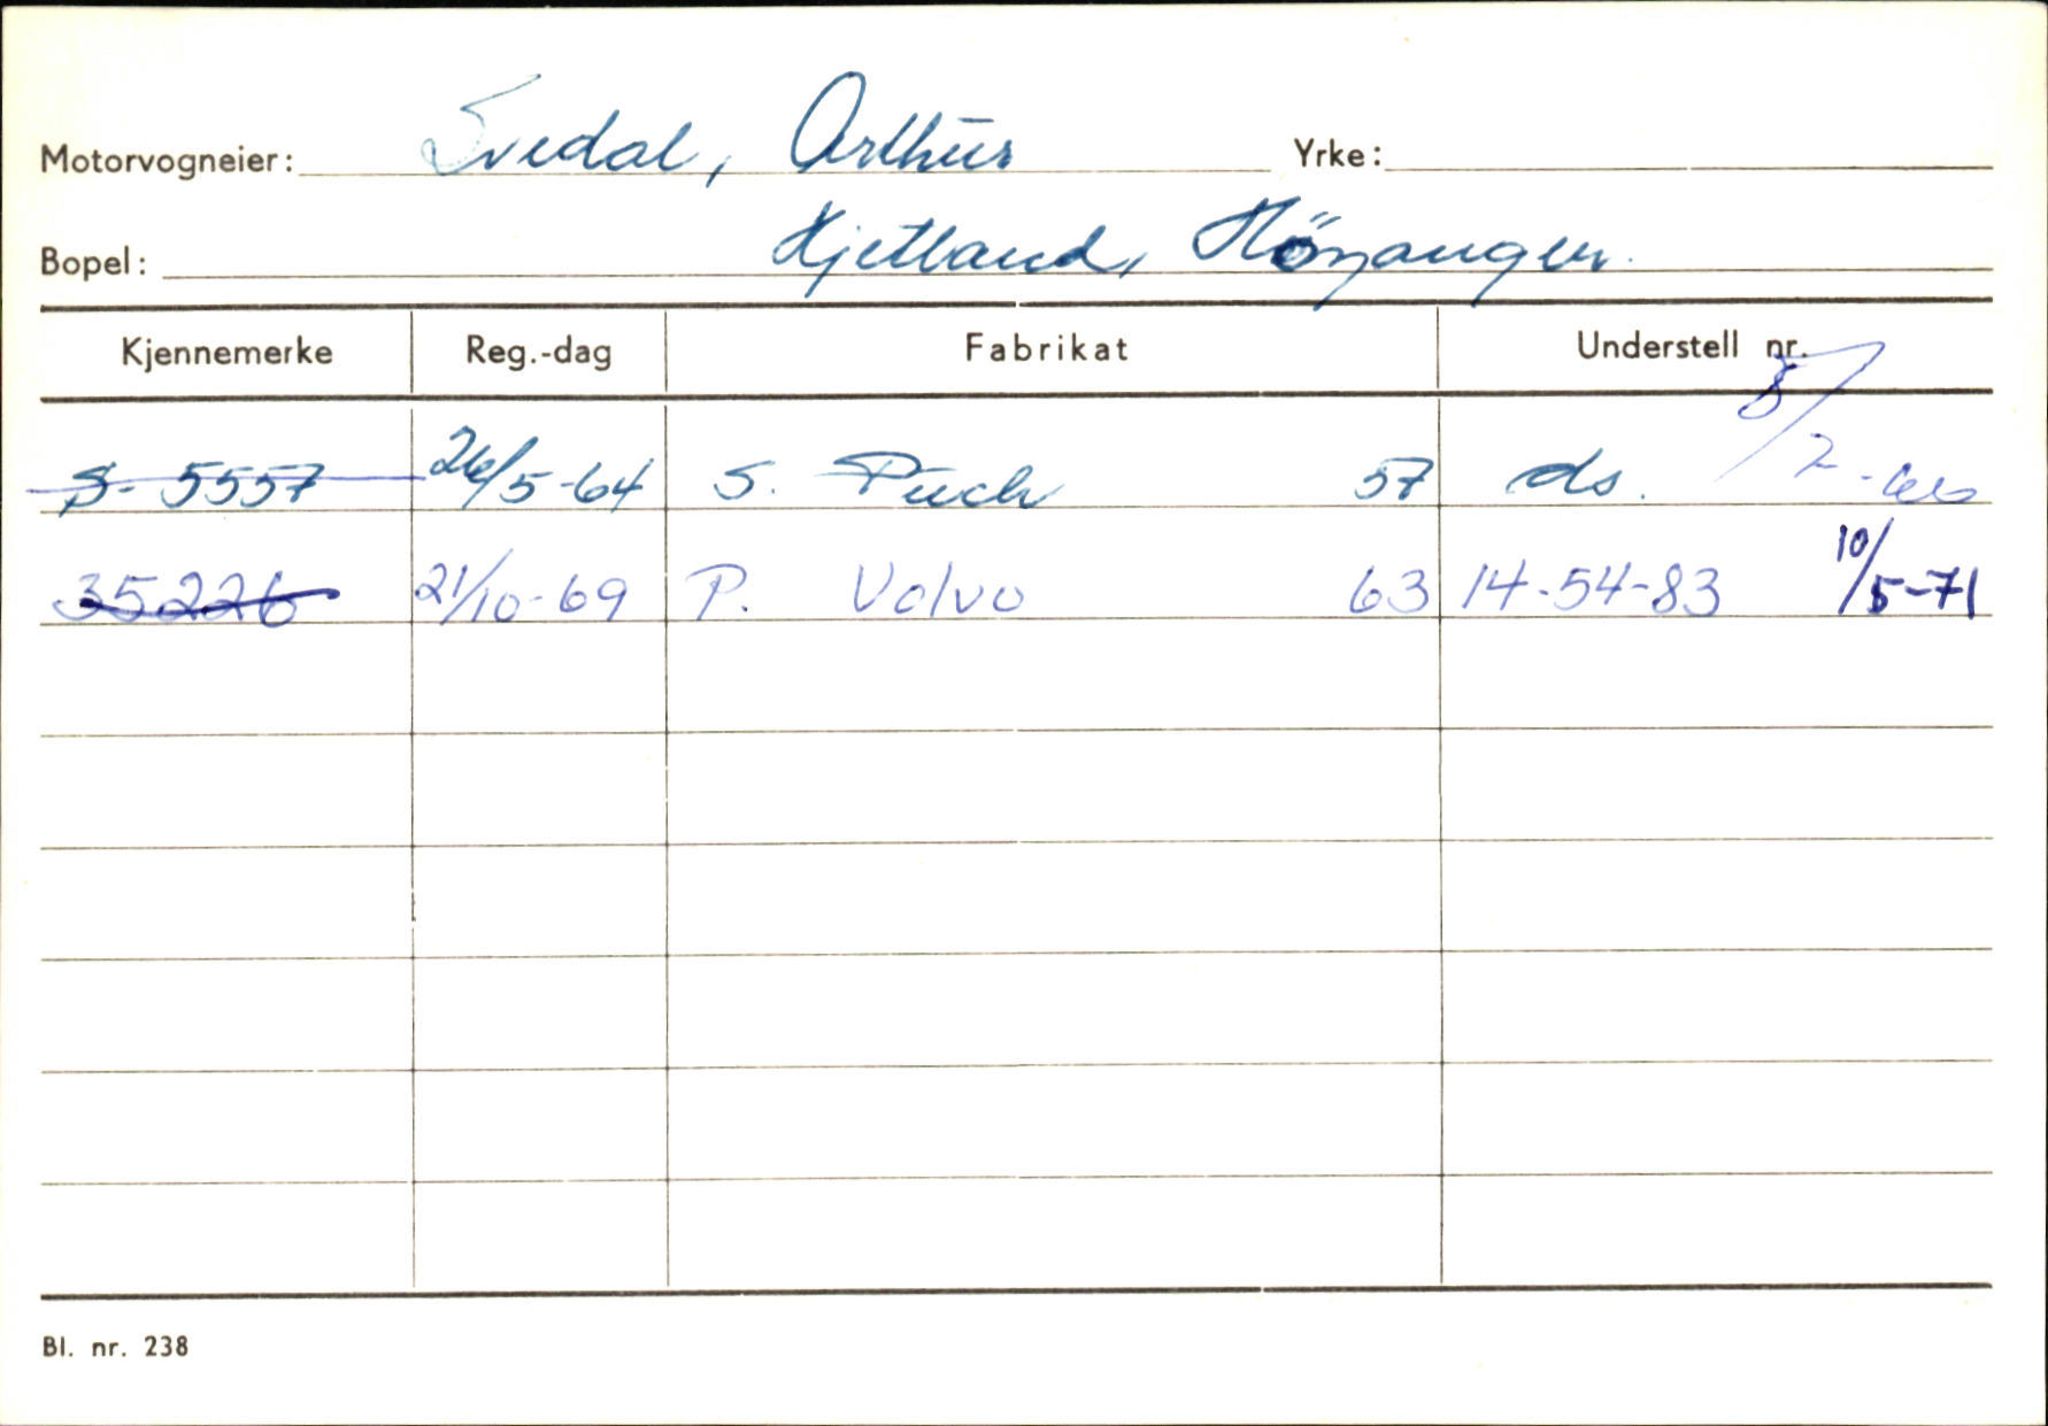 Motorvogneier: Svedal, Arthur Yrke:
Bopel: Kjetland, Höyanger.
Kjennemerke Reg.-dag Fabrikat Understell nr.
S- 5557 26/5-64 S. Puch 57 ds. 8/2-66
35226 21/10-69 P. Volvo 63 14-54-83 10/5-71
Bl. nr. 238